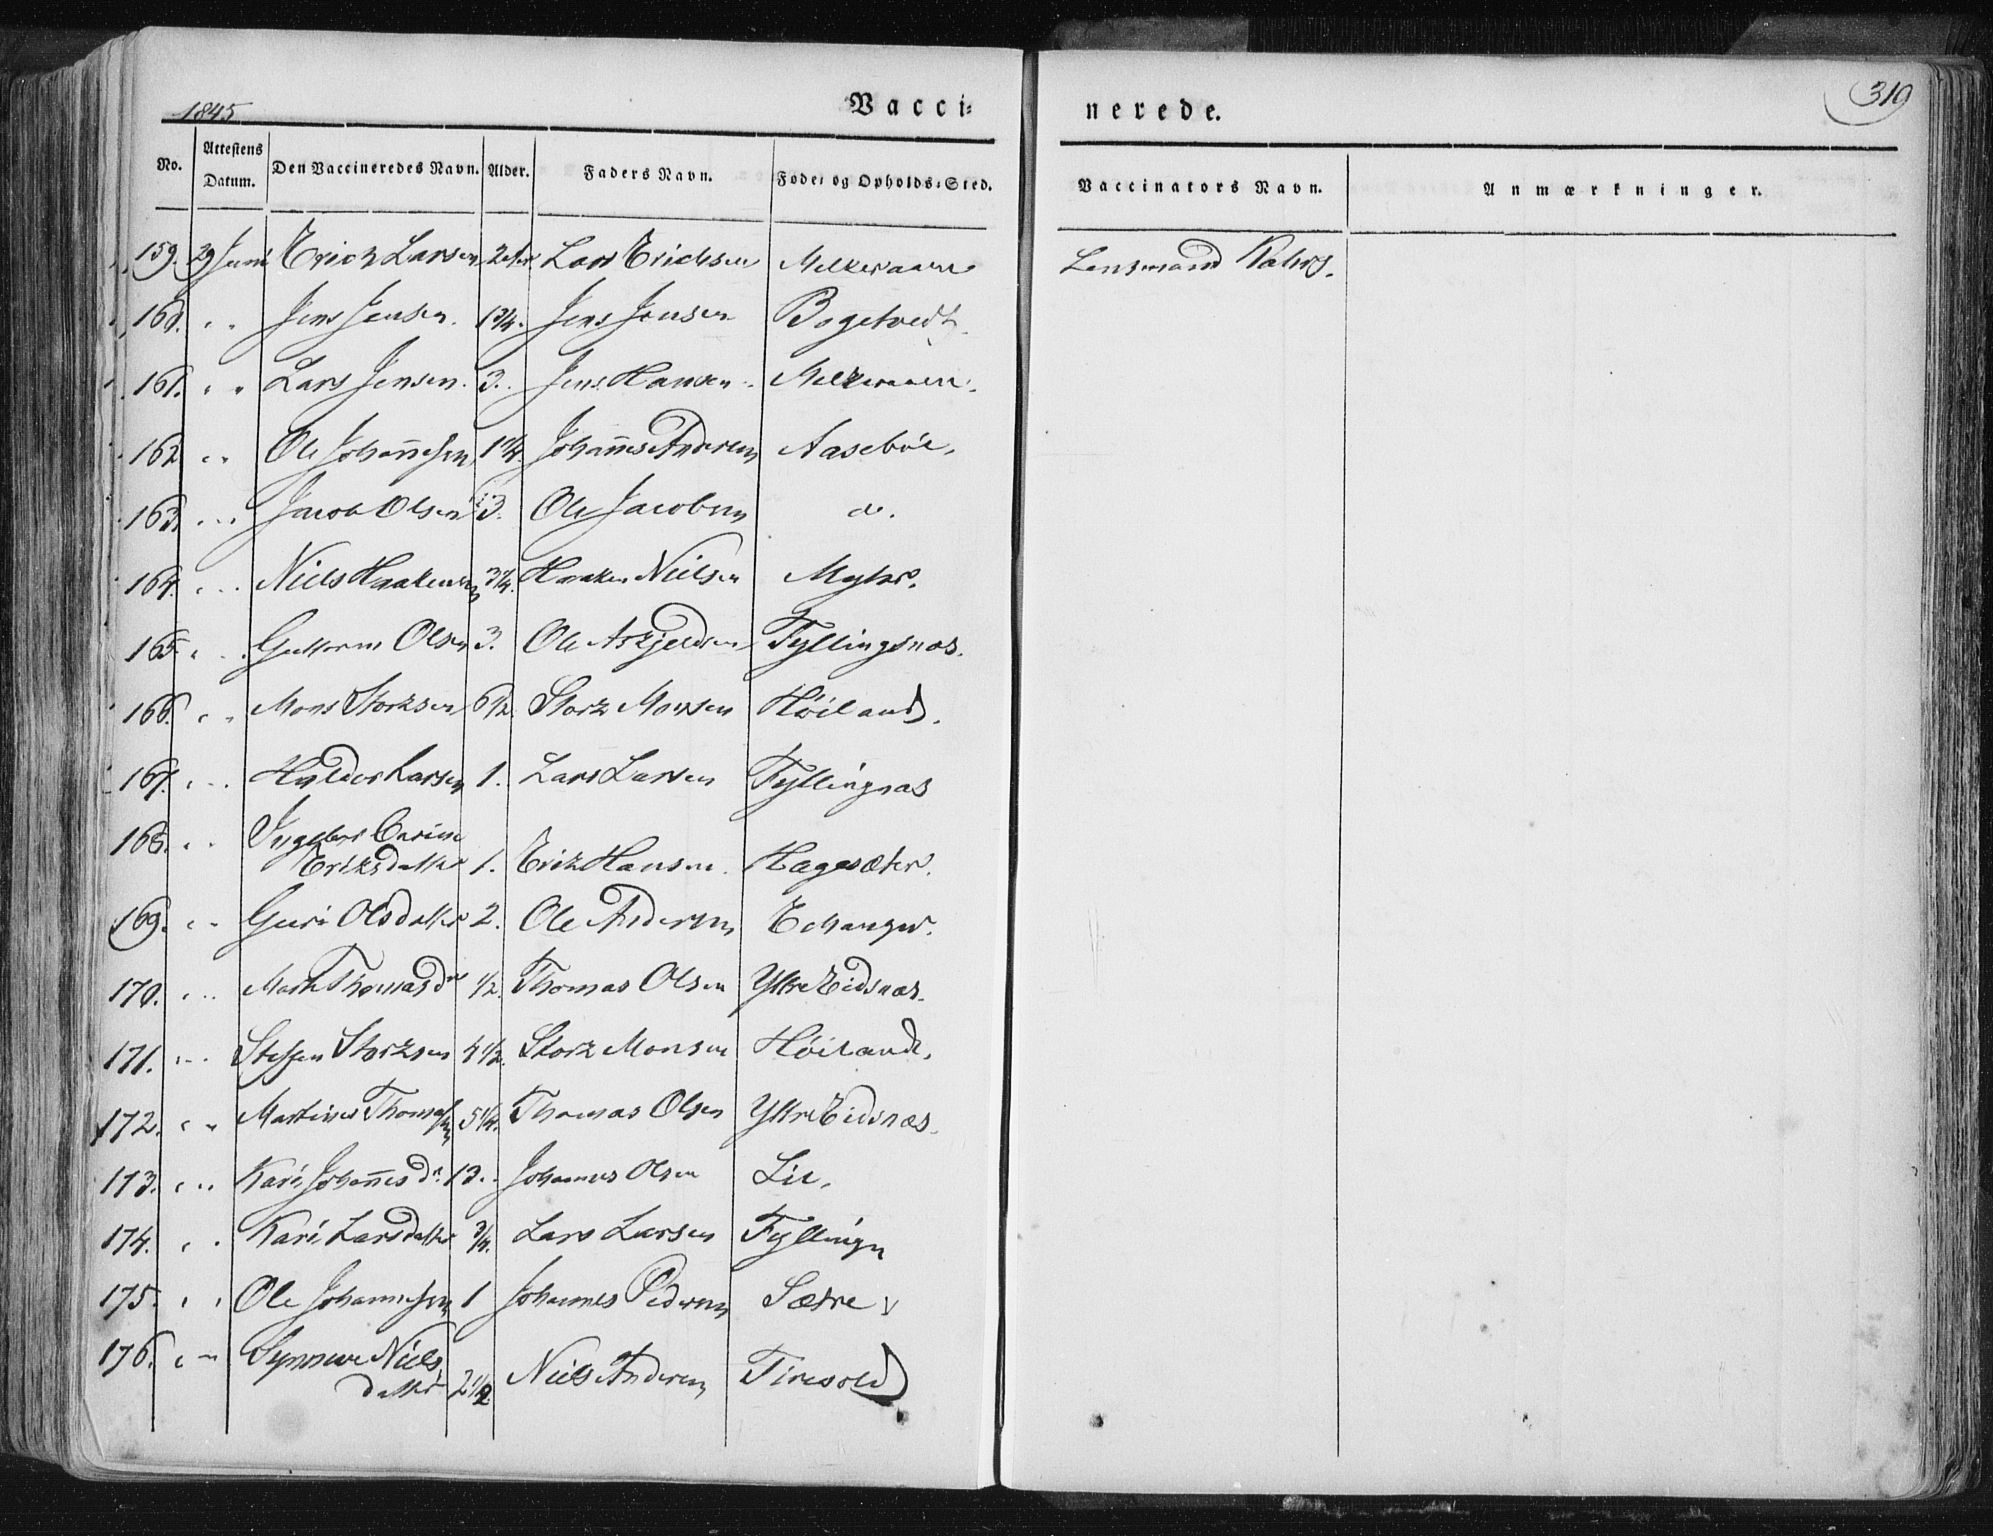 1845
Vacci=
nerede.
319
No. Attestens Datum. Den Vaccineredes Navn. Alder. Faders Navn. Føde= og Opholds=Sted. Vaccinators Navn. Anmærkninger.
159. 29 Juni Erich Larsen 2 Lars Erichsen Melkeraaen Lensmand Rahrs.
160. " " Jens Jensen. 1 3/4. Jens Jensen Bogetvedt.
161. " " Lars Jensen. 3. Jens Hansen. Melkeraaen.
162 " " Ole Johannesen 1 1/4. Johannes Andersen Aasebøe.
163. " " Jacob Olsen 3. Ole Jacobsen do.
164. " " Niels Haakensen 3 1/4. Haaken Nielsen Myhr.
165. " " Guttorm Olsen 3. Ole Askjeldsen Fyllingsnæs.
166. " " Mons Storksen 6 1/2. Stork Monsen Høiland.
167. " " Haldor Larsen 1. Lars Larsen Fyllingnæs
168. " " Ingebor Carine
Eriksdatter 1. Erik Hansen. Hagesæter.
169. " " Guri Olsdatter 2. Ole Andersen Echanger.
170. " " Thomasdr 1/2. Thomas Olsen Yttre Eidsnæs.
171. " " Steffen Storksen 4 1/2. Stork Monsen Høiland.
172. " " Martinus Thomassen 5 1/4. Thomas Olsen Yttre Eidsnæs.
173. " " Kari Johannesdr. 13. Johannes Olsen Lie.
174. " " Kari Larsdatter 3/4. Lars Larsen Fyllingn
175. " " Ole Johannesen 1 Johannes Pedersen Sætre
176. " " Synneve Niels
datter 2 1/2 Niels Andersen Tiresold